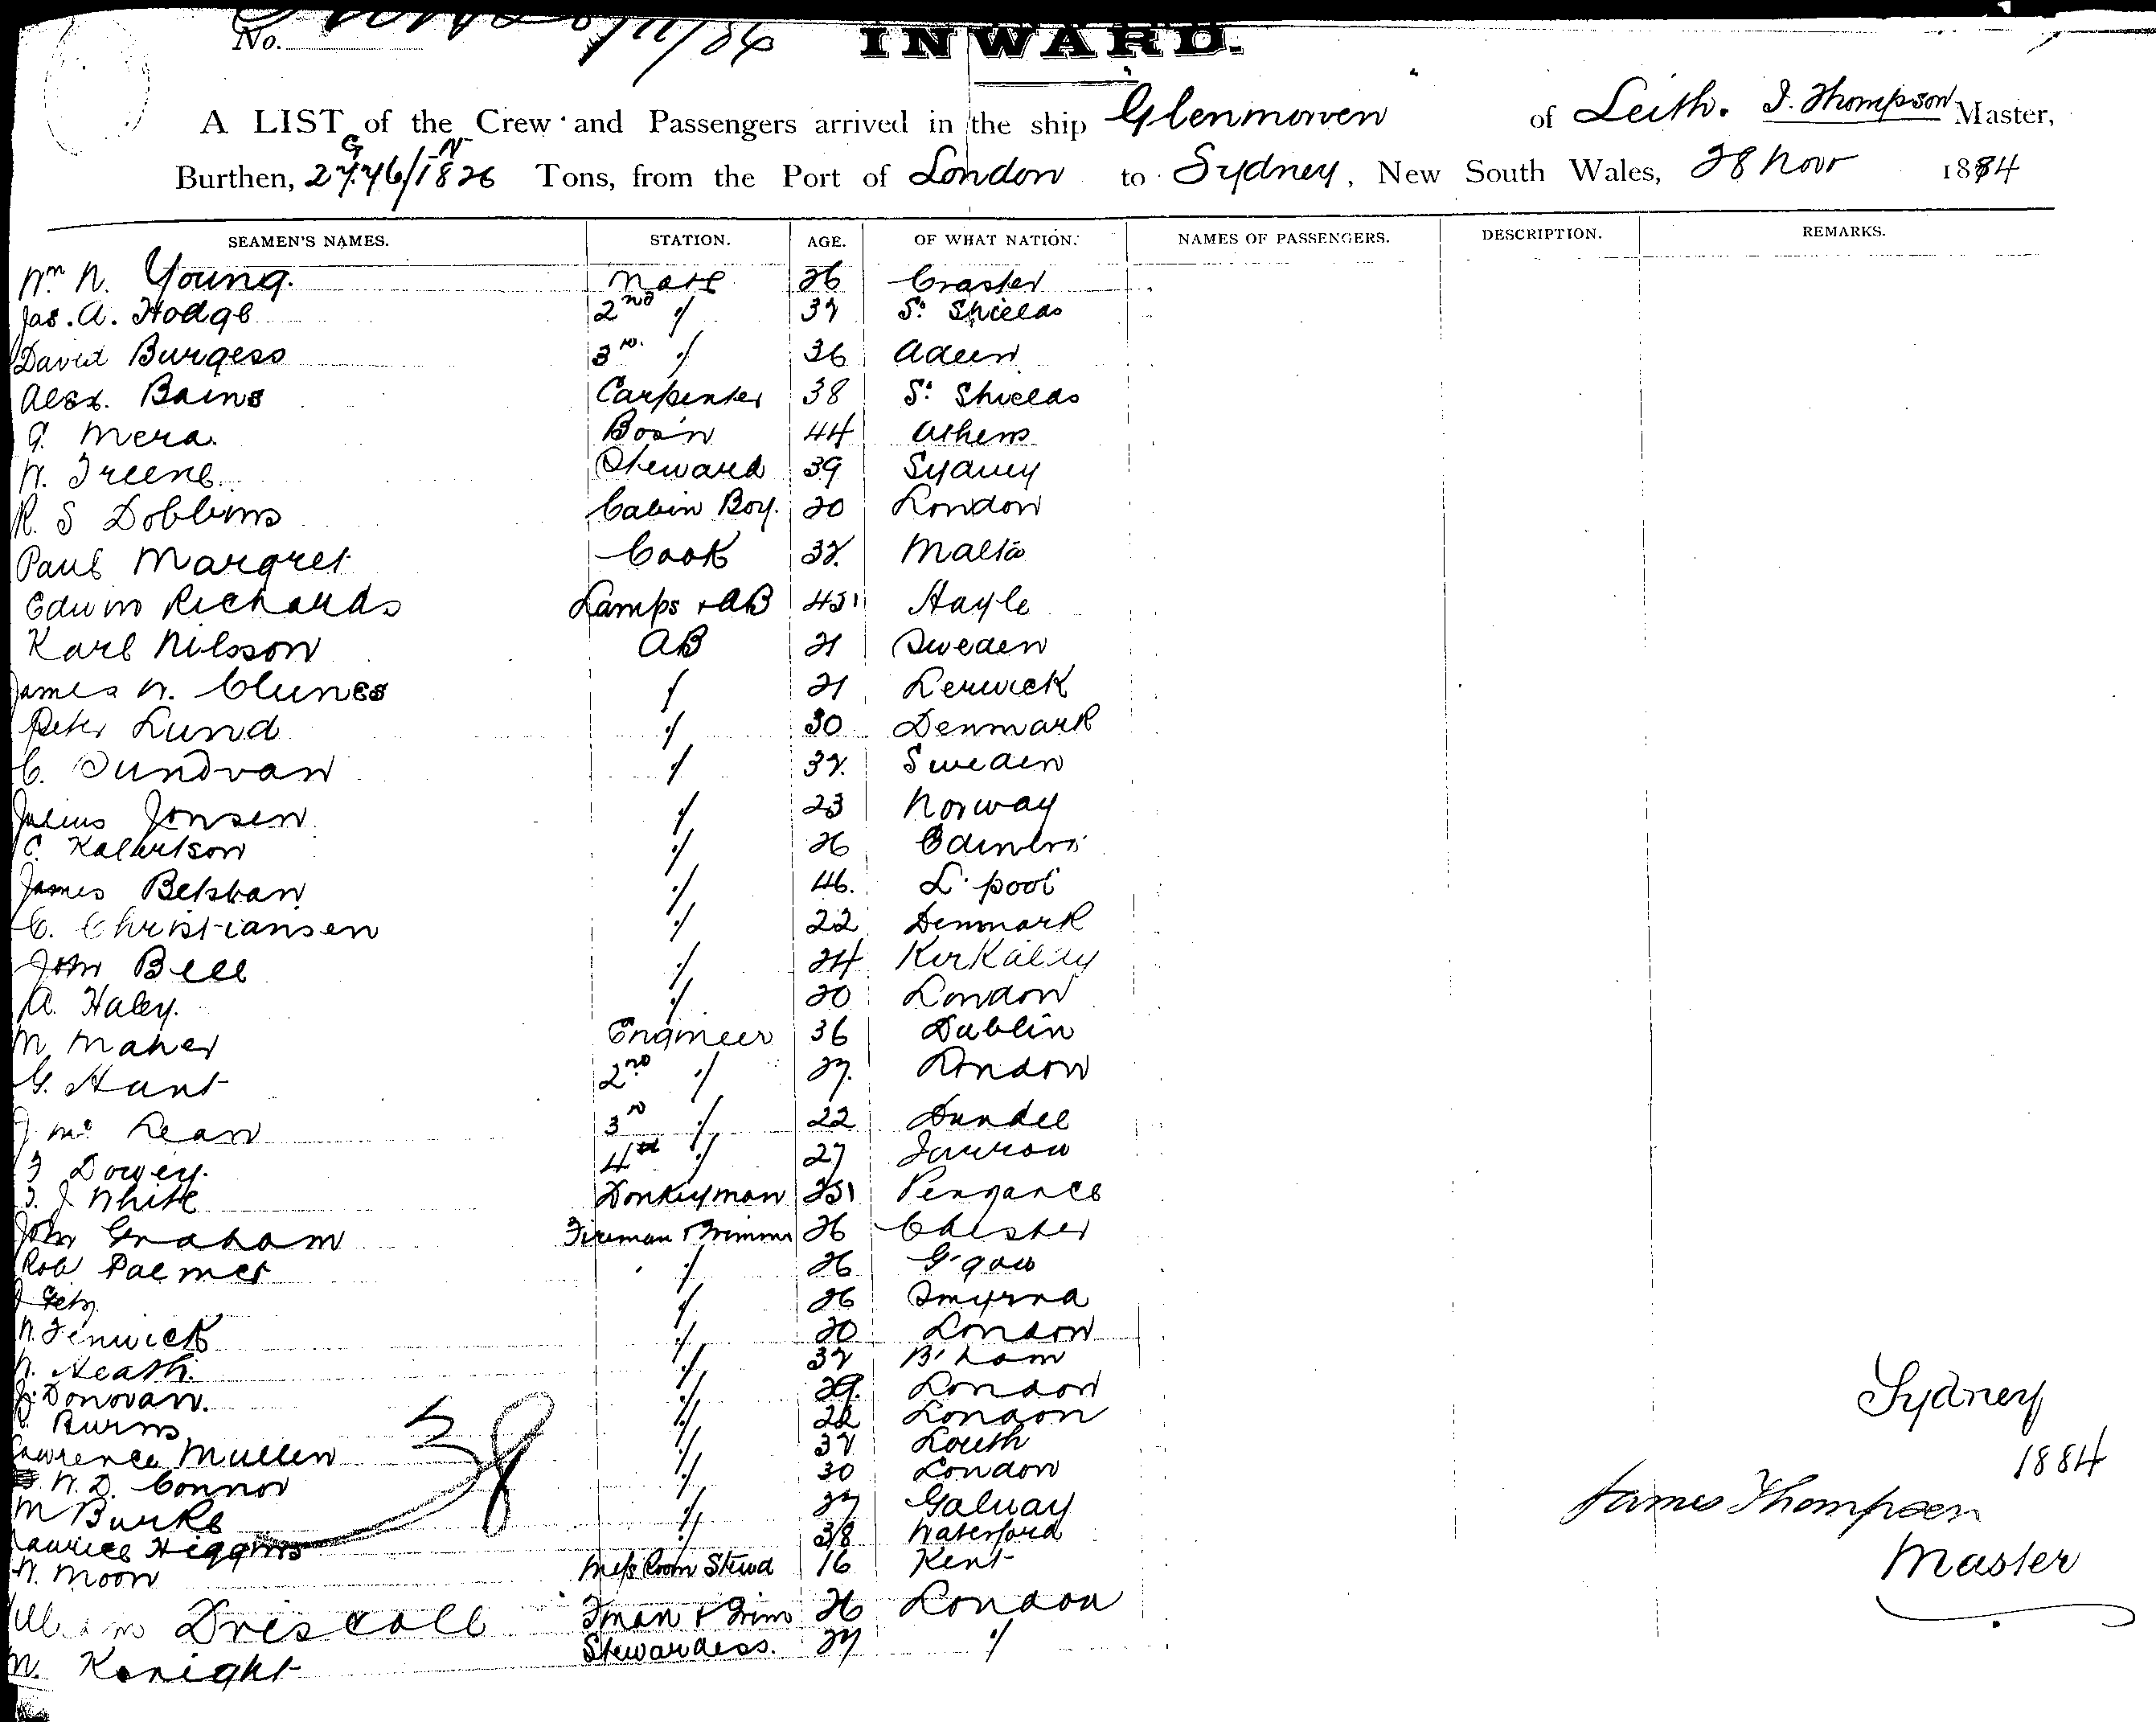 No. 28/11/84
INWARD.
A LIST of the Crew and Passengers arrived in the ship Glenmorven of Leith. J. Thompson Master,
Burthen, 2776 G/1826 N Tons, from the Port of London to Sydney, New South Wales, 28 Novr 1884
SEAMEN'S NAMES. STATION. AGE. OF WHAT NATION. NAMES OF PASSENGERS. DESCRIPTION. REMARKS.
Wm W. Young. Mate 26 Craster
Jas. A. Hodge 2nd " 32 So. Shields
David Burgess 3rd " 36 Adeen
Alex. Bains Carpenter 38 So. Shields
G. Mera. Bos'n 44 Athens
W. Treene Steward 39 Sydney
R. S Dobbins Cabin Boy. 20 London
Paul Margret Cook 32. Malta
Edwin Richards Lamps + AB 45 Hayle
Karl Nilsson AB 21 Sweden
James W. Clunes " 21 Lerwick
Peter Lund " 30 Denmark
C. Sundvan " 32. Sweden
Julius Jonsen " 23 Norway
C. Kalbertson " 26 Edinbro
James Belshaw " 46. L'pool
C. Christiansen " 22 Denmark
John Bell " 24 Kirkaldy
A. Haley. " 20 London
M Maher Engineer 36 Dublin
G. Hunt 2nd " 27. London
J Mc Lean 3rd " 22 Dundee
Dowey. 4th " 27 Jarrow
J. White Donkeyman 25 Penzance
John Graham Fireman & Trimmer 26 Chester
Rob Palmer " 26 G'gow
J " 26 Smyrna
W. Fenwick " 20 London
W. Neath. " 32 B'ham
J. Donovan. " 29. London
Burns " 22 London
Lawrence Mullen " 32 Louth
W. D. Connor " 30 London
M Burke " 27 Galway
Maurice Higgins " 38 Waterford
W. Moon Mess Room Stewd 16 Kent
William Driscoll F'man & Trim 26 London
M. Knight Stewardess. 27 "
38
Sydney
1884
James Thompson
Master